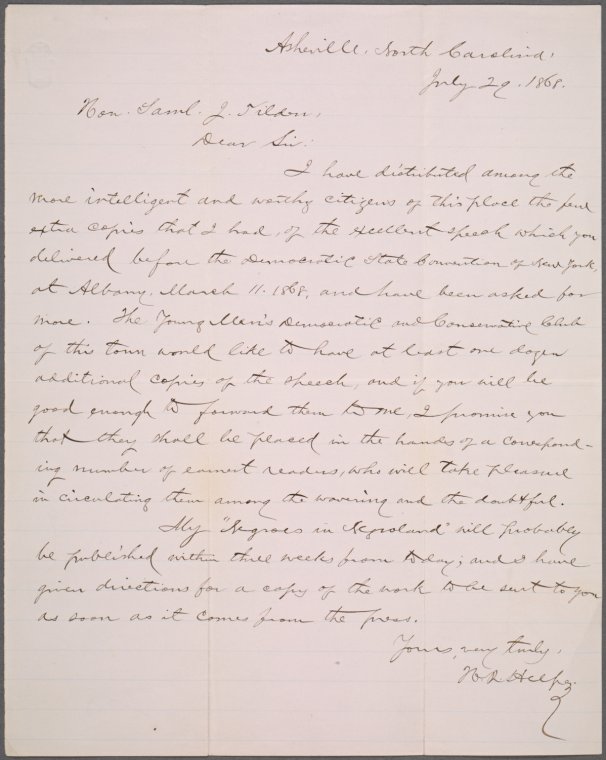 Asheville, North Carolina,
July 29. 1868.
Hon. Saml. J. Tilden,
Dear Sir:
I have distributed among the
more intelligent and worthy citizens of this place the few
extra copies that I had, of the excellent speech which you
delivered before the Democratic State Convention of New York,
at Albany, March 11. 1868, and have been asked for
more. The Young Men's Democratic and Conservative Club
of this town would like to have at least one dozen
additional copies of the speech, and if you will be
good enough to forward them to me, I promise you
that they shall be placed in the hands of a correspond-
ing number of earnest readers, who will take pleasure
in circulating them among the wavering and the doubtful.
My "Negroes in Negroland" will probably
be published within three weeks from today; and I have
given directions for a copy of the work to be sent to you
as soon as it comes from the press.
Yours, very truly,
H. R. Helper.